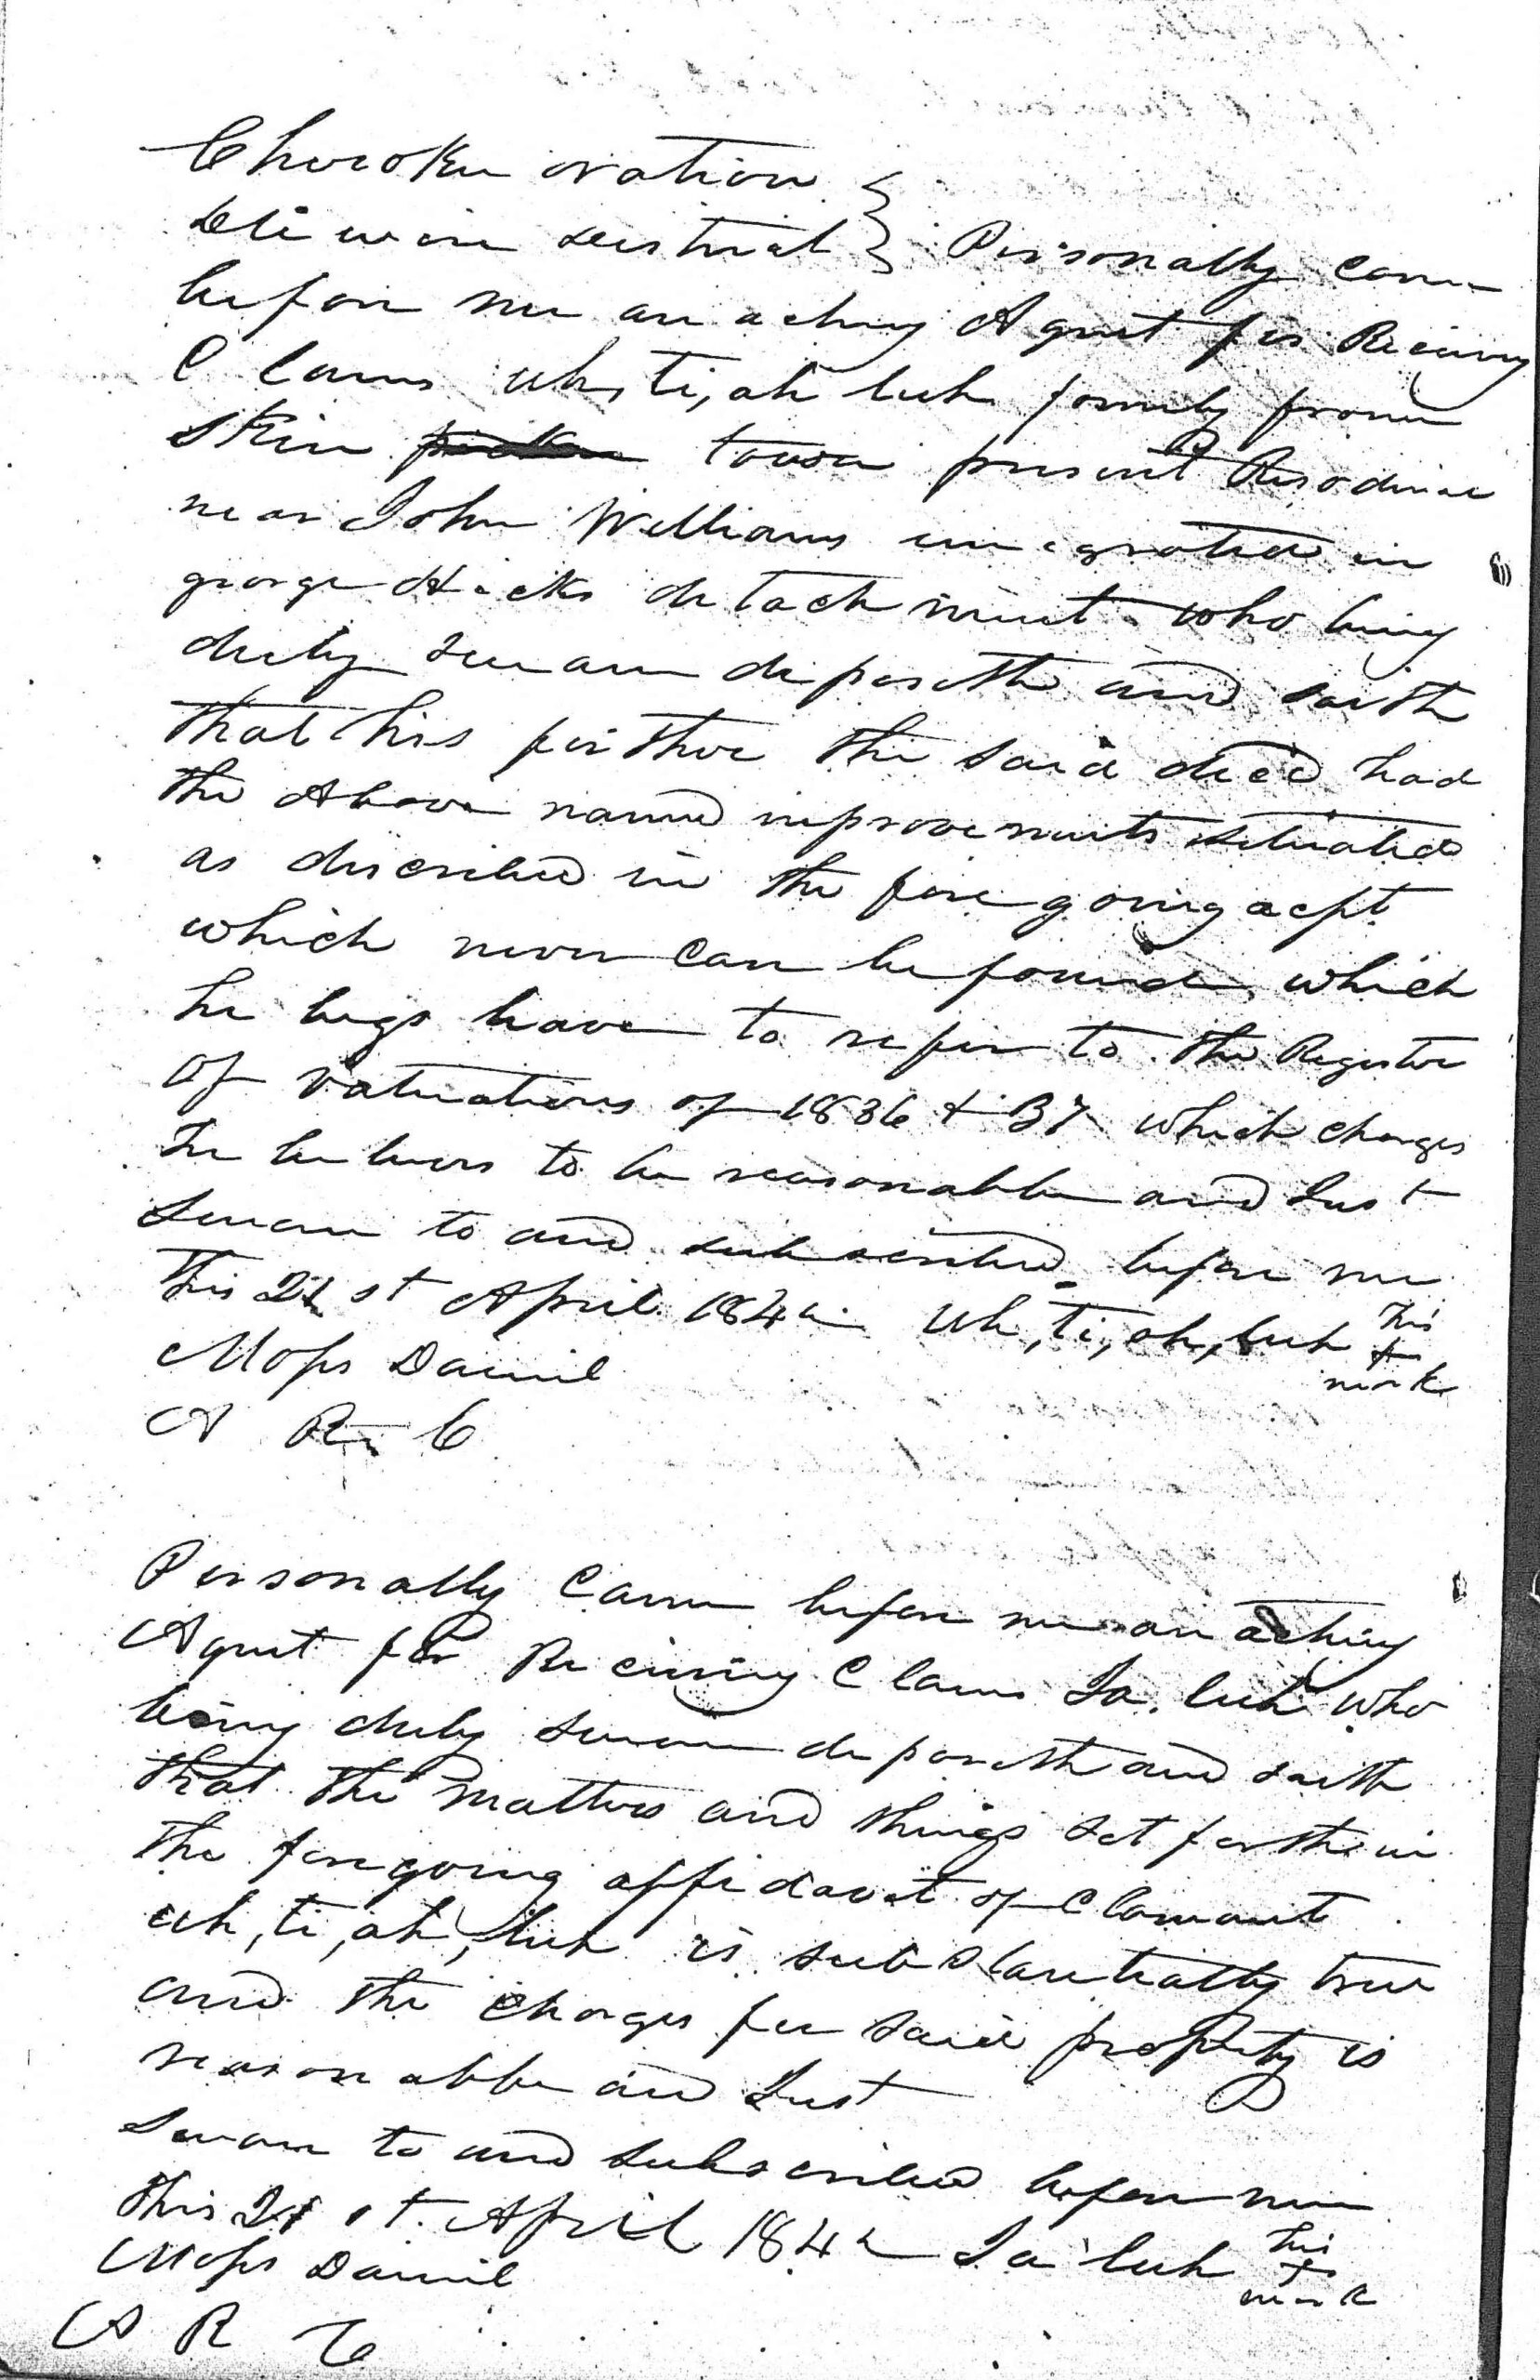 Cherokee nation }
Deleware District } Personally came
before me an acting Agent for Receiving
Claims uh, ti, ah luh formerly from
Skin town present Residence
near John Williams emegrated in
george Hicks detachment who being
duly sworn deposeth and saith
that his father the said decd had
the Above named improvements situated
as discribed in the fore going acpt
which never can be found which
he begs leave to refer to the Register
of valuations of 1836 & 37 which charges
he believes to be reasonable and Just
Sworn to and subscribed before me
This 21st April 1842 Uh, ti, ah, luh his
+
mark
Moss Daniel
A R C
Personally Came before me an acting
Agent for Receiving Claims Ja. luh who
being duly sworn deposeth and saith
that the matters and things set forth in
the foregoing affidavit of Clamant
uh, ti, ah, luh is substantially true
and the Charges for said property is
reasonable and Just
Sworn to and subscribed before me
this 21st April 1842 Ja luh his
+
mark
Moss Daniel
A R C